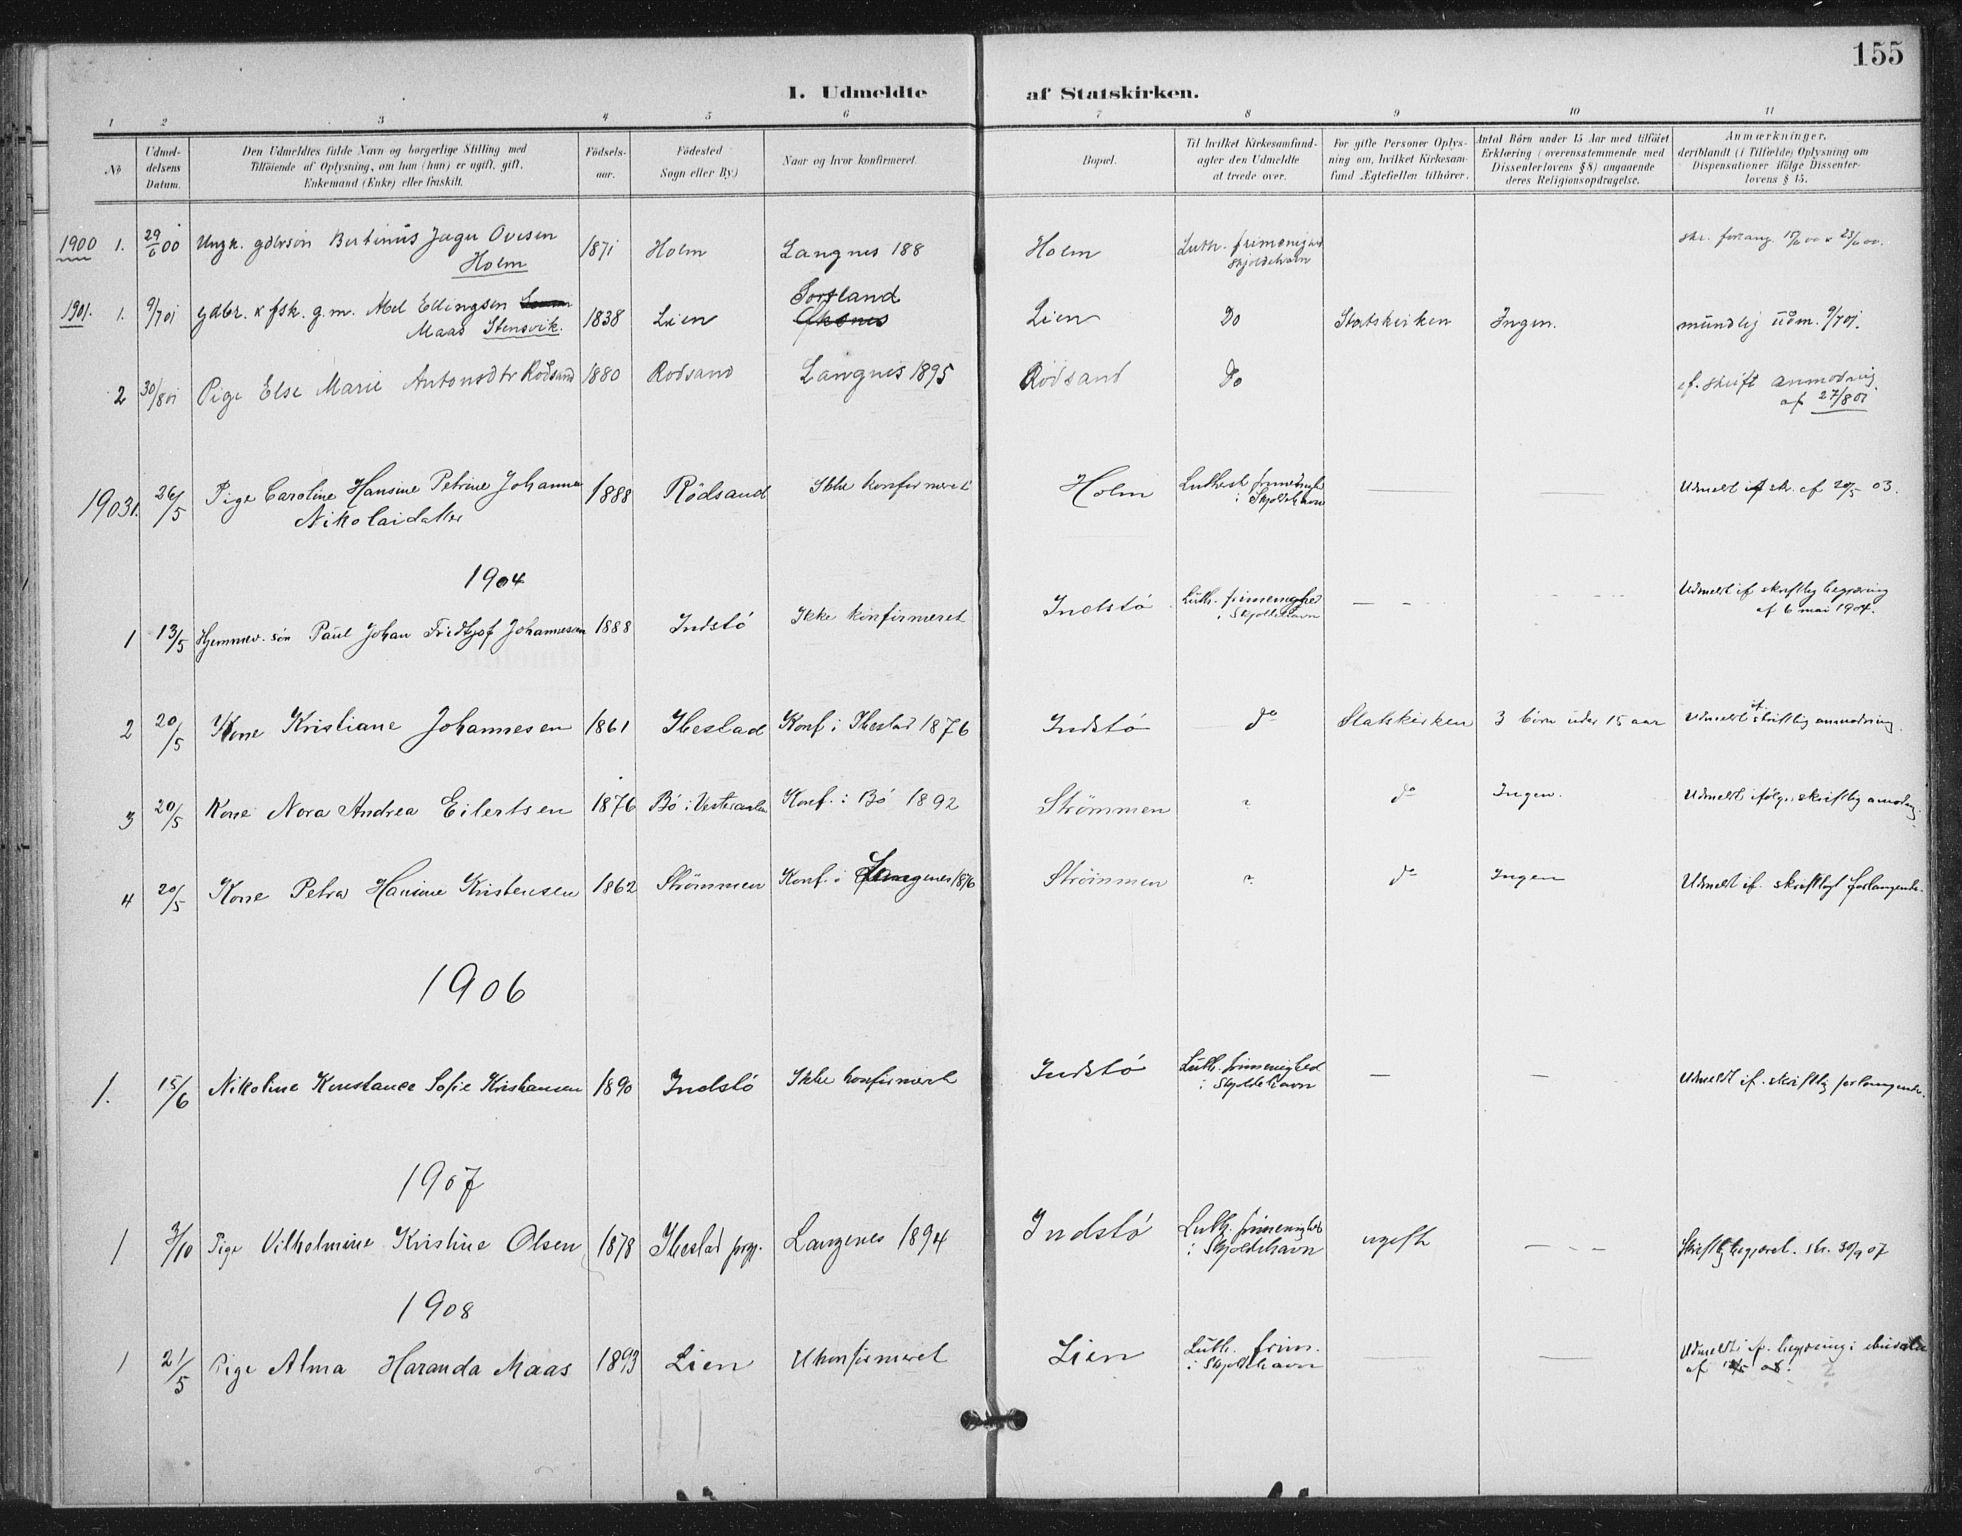 155
1. Udmeldte af Statskirken.
1 2 3 4 5 6 7 8 9 10 11
No
Udmeldelsens Datum.
Den Udmeldtes fulde Navn og borgerlige Stilling med
Tilföiende af Oplysning, om han (hun) er ugift, gift,
Enkemand (Enke) eller fraskilt.
Födselsaar.
Födested
Sogn eller By.)
Naar og hvor konfirmeret.
Bopæl.
Til hvilket Kirkesamfund-
agter den Udmeldte
at træde over.
For gifte Personer Oplys-
ning om, hvilket Kirkesam-
fund Ægtefællen tilhörer.
Antal Börn under 15 Aar med tilföiet
Erklæring (overensstemmende med
Dissenterlovens § 8) angaaende
deres Religionsopdragelse.
Anmærkninger,
deriblandt (i Tilfælde) Oplysning om
Dispensationer ifölge Dissenter-
lovens § 15.
1900 1. 29/6 00 Ungk. gdbrsön Bertinus Jæger Ovesen Holm 1871 Holm Langnes 188 Holm Luth. frimenighed Skjoldehavn
1901. 1. 9/7 01 gdbr. & fsk. g.m. Abel Ellingsen Maas Stensvik. 1838 Lien Sortland Lien Do Statskirken Ingen. mündlig üdm. 9/7 01.
2 30/8 01 Pige Else Marie Antonsdtr Rödsand 1880 Rodsand Langnes 1895 Rödsand Do ef. skrift anmodning af 27/8 01
1903 1. 26/5 Pige Caroline Hansine Petrine Johanna Nikolaidatter 1888 Rödsand Ikke konfirmeret Holm Luthersk frimenighed i Skjoldehavn — — Udmeldt if skr. af 20/5 03.
1904
1 13/5 Hjemmev. sön Paul Johan Fridtjof Johannesen 1888 Indstö Ikke konfirmeret Indstö Luth. frimenighed i Skjoldehavn — Udmeldt if skriftlig begjæring af 6 mai 1904.
2 20/5 Kone Kristiane Johannesen 1861 Ibestad Konf. i Ibestad 1876 Indstö do Statskirken 3 börn under 15 aar Udmeldt if skriftlig anmodning
3 20/5 Kone Nora Andrea Eilertsen 1876 Bö i Vesteraalen Konf. i Bö 1892 Strömmen ? do Ingen. Udmeldt ifölge skriftlig anmodng.
4 20/5 Kone Petra Hansine Kristensen 1862 Strömmen Konf. i Langenes 1876 Strömmen ? do Ingen Udmeldt if. skriftligt forlangende.
1906
1. 15/6 Nikoline Konstance Sofie Kristiansen 1890 Indstö Ikke konfirmeret Indstö Luth. frimenighed i Skjoldehavn — — Udmeldt if. skriftlig forlangende.
1907
1 3/10 Pige Vilhelmine Kristine Olsen 1878 Ibestad prgj. Langenes 1894 Indstö Luth. frimenighed i Skjoldehavn ugift — Skriftlig begjæret. skr. 30/9 07
1908
1 21/5 Pige Alma Haranda Maas 1893 Lien Ukonfirmeret Lien Luth. frim. i Skjoldehavn — — Udmeldt if. begjæring